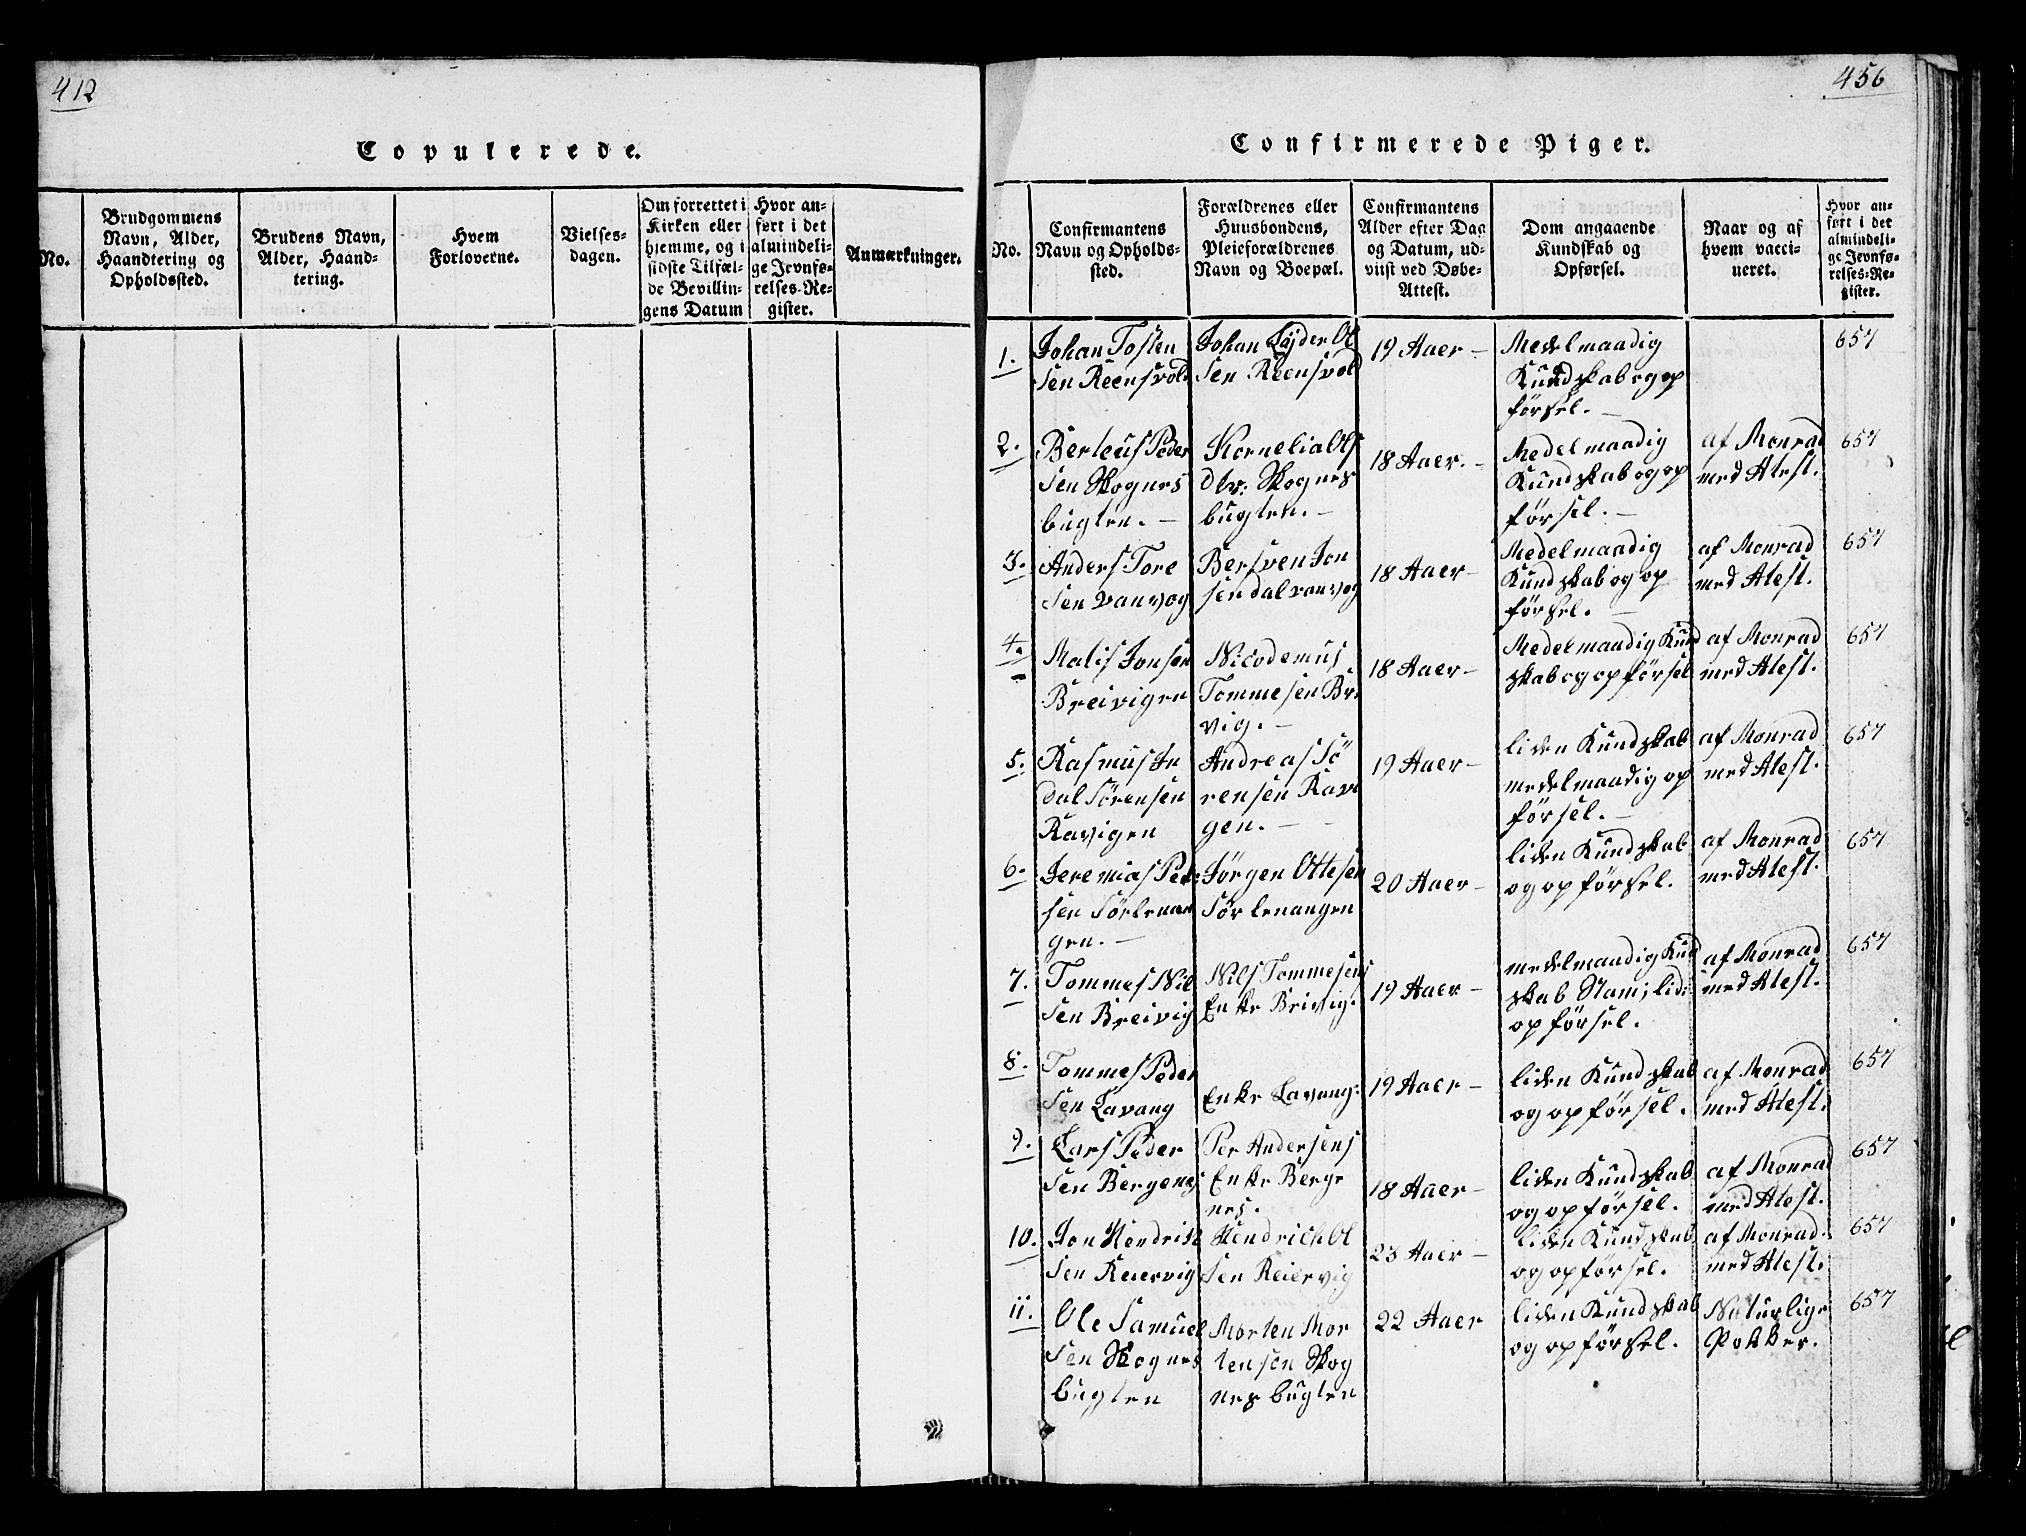 412
Copulerede.
No.
Brudgommens
Navn, Alder,
Haandtering og
Opholdssted.
Brudens Navn,
Alder, Haand-
tering.
Hvem
Forloverne.
Vielses-
dagen.
Om forrettet i
Kirken eller
hjemme, og i
sidste Tilfæl-
de Bevillin-
gens Datum
Hvor an-
ført i det
almindeli-
ge Jevnfø-
relses-Re-
gister.
Anmærkninger.
456
Confirmerede Piger.
No.
Confirmantens
Navn og Opholds-
sted.
Forældrenes eller
Huusbondens,
Pleieforældrenes
Navn og Boepæl.
Confirmantens
Alder efter Dag
og Datum, ud-
viist ved Døbe-
Attest.
Dom angaaende
Kundskab og
Opførsel.
Naar og af
hvem vacci-
neret.
Hvor an-
ført i det
almindeli-
ge Jevnfø-
relses-Re-
gister.
1.
Johan Tosten
sen Reensvold
Johan Lyder Ol
sen Reensvold
19 Aaer —
Medelmaadig
Kundskab og op
førsel. —
657
2.
Berteus Peder
sen Skognes
bugten. —
Kornelia Ols
Dtr: Skognes
bugten. —
18 Aaer. —
Medelmaadig
Kundskab og op
førsel. —
af Monrad
med Atest.
657
3.
Anders Tore
sen Vanvog
Bersven Jon
sen dal vanvog
18 Aaer —
Medelmaadig
Kundskab og op
førsel. —
af Monrad
med Atest.
657
4.
Malis Jonsen
Breivigen
Nicodemus
Tommesen Br
vig. —
18 Aaer —
Medelmaadig Kund
skab og opførsel
af Monrad
med Atest.
657
5.
Rasmus In
dal Sørensen
Ravigen
Andreas Sö
rensen Ravi
gen. —
19 Aaer —
liden Kundskab
medelmaadig op
førsel. —
af Monrad
med Atest.
657
6.
Jeremias Peder
sen Sørlenan
gen. —
Jörgen Ottesen
Sørlenangen
20 Aaer —
liden Kundskab
og opførsel.
af Monrad
med Atest.
657
7.
Tommes Nil
sen Breivig
Nils Tommesens
Enke Brivig.
19 Aaer —
medelmaadig Kund
skab Stam; lid:
opførsel.
af Monrad
med Atest.
657
8.
Tommes Peder
sen Lavang
Enke Lavang:
19 Aaer —
liden Kundskab
og opførsel.
af Monrad
med Atest.
657
9.
Lars Peder
sen Bergenes
Per Andersens
Enke Berge
nes.
18 Aaer —
liden Kundskab
og opførsel.
af Monrad
med Atest.
657
10.
Jon Hendrik
sen Reiervig
Hendrich Ol
sen Reiervig
23 Aaer —
liden Kundskab
og opførsel.
af Monrad
med Atest.
657
11.
Ole Samuel
sen Skognes
bugten
Morten Mor
tensen Skog
nes bugten
22 Aaer
liden Kundskab
og opførsel.
Naturlige
Pokker.
657